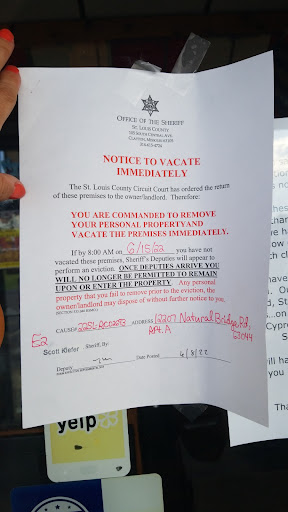 OFFICE OF THE SHERIFF
ST. LOUIS COUNTY
105 SOUTH CENTRAL AVE.
CLAYTON, MISSOURI 63105
NOTICE TO VACATE
IMMEDIATELY
The St. Louis County Circuit Court has ordered the return
of these premises to the owner/landlord. Therefore:
YOU ARE COMMANDED TO REMOVE
YOUR PERSONAL PROPERTYAND
VACATE THE PREMISES IMMEDIATELY.
If by 8:00 AM on 6/15/22 you have not
vacated these premises, Sheriff's Deputies will appear to
perform an eviction. ONCE DEPUTIES ARRIVE YOU
WILL NO LONGER BE PERMITTED TO REMAIN
UPON OR ENTER THE PROPERTY. Any personal
property that you fail to remove prior to the eviction, the
owner/landlord may dispose of without further notice to you.
CAUSE# ADDRESS 12207 Natural Bridge Rd,
Apt. A
63044
E2
Scott Kiefer Sheriff By:
Deputy Date Posted 6/8/22
yelp